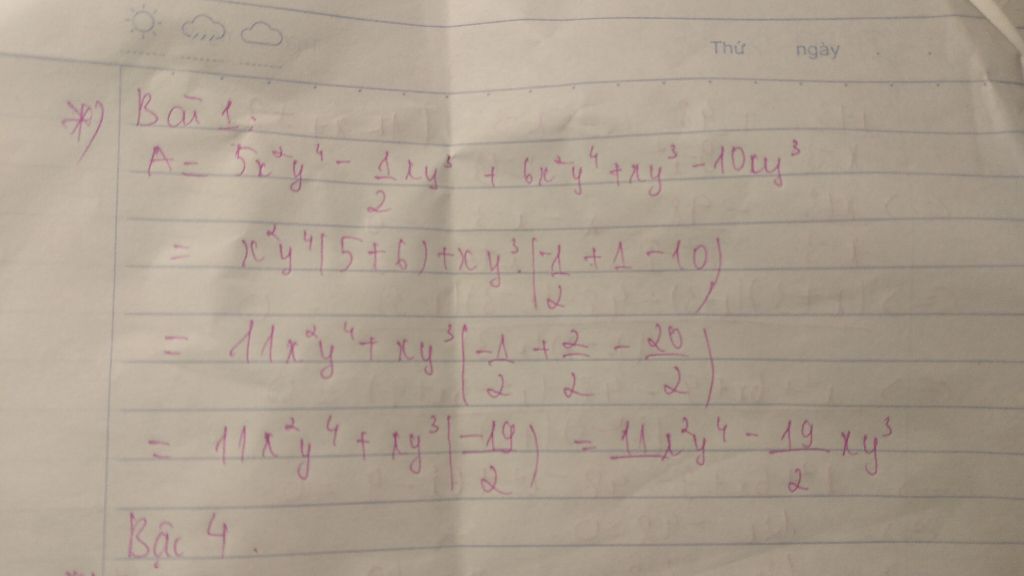 Thứ ngày
*) Bài 1:
A = 5x²y⁴ - 1/2 xy³ + 6x²y⁴ + xy³ - 10xy³
= x²y⁴(5+6) + xy³.(-1/2 + 1 - 10)
= 11x²y⁴ + xy³(-1/2 + 2/2 - 20/2)
= 11x²y⁴ + xy³(-19/2) = 11x²y⁴ - 19/2 xy³
Bậc 4.